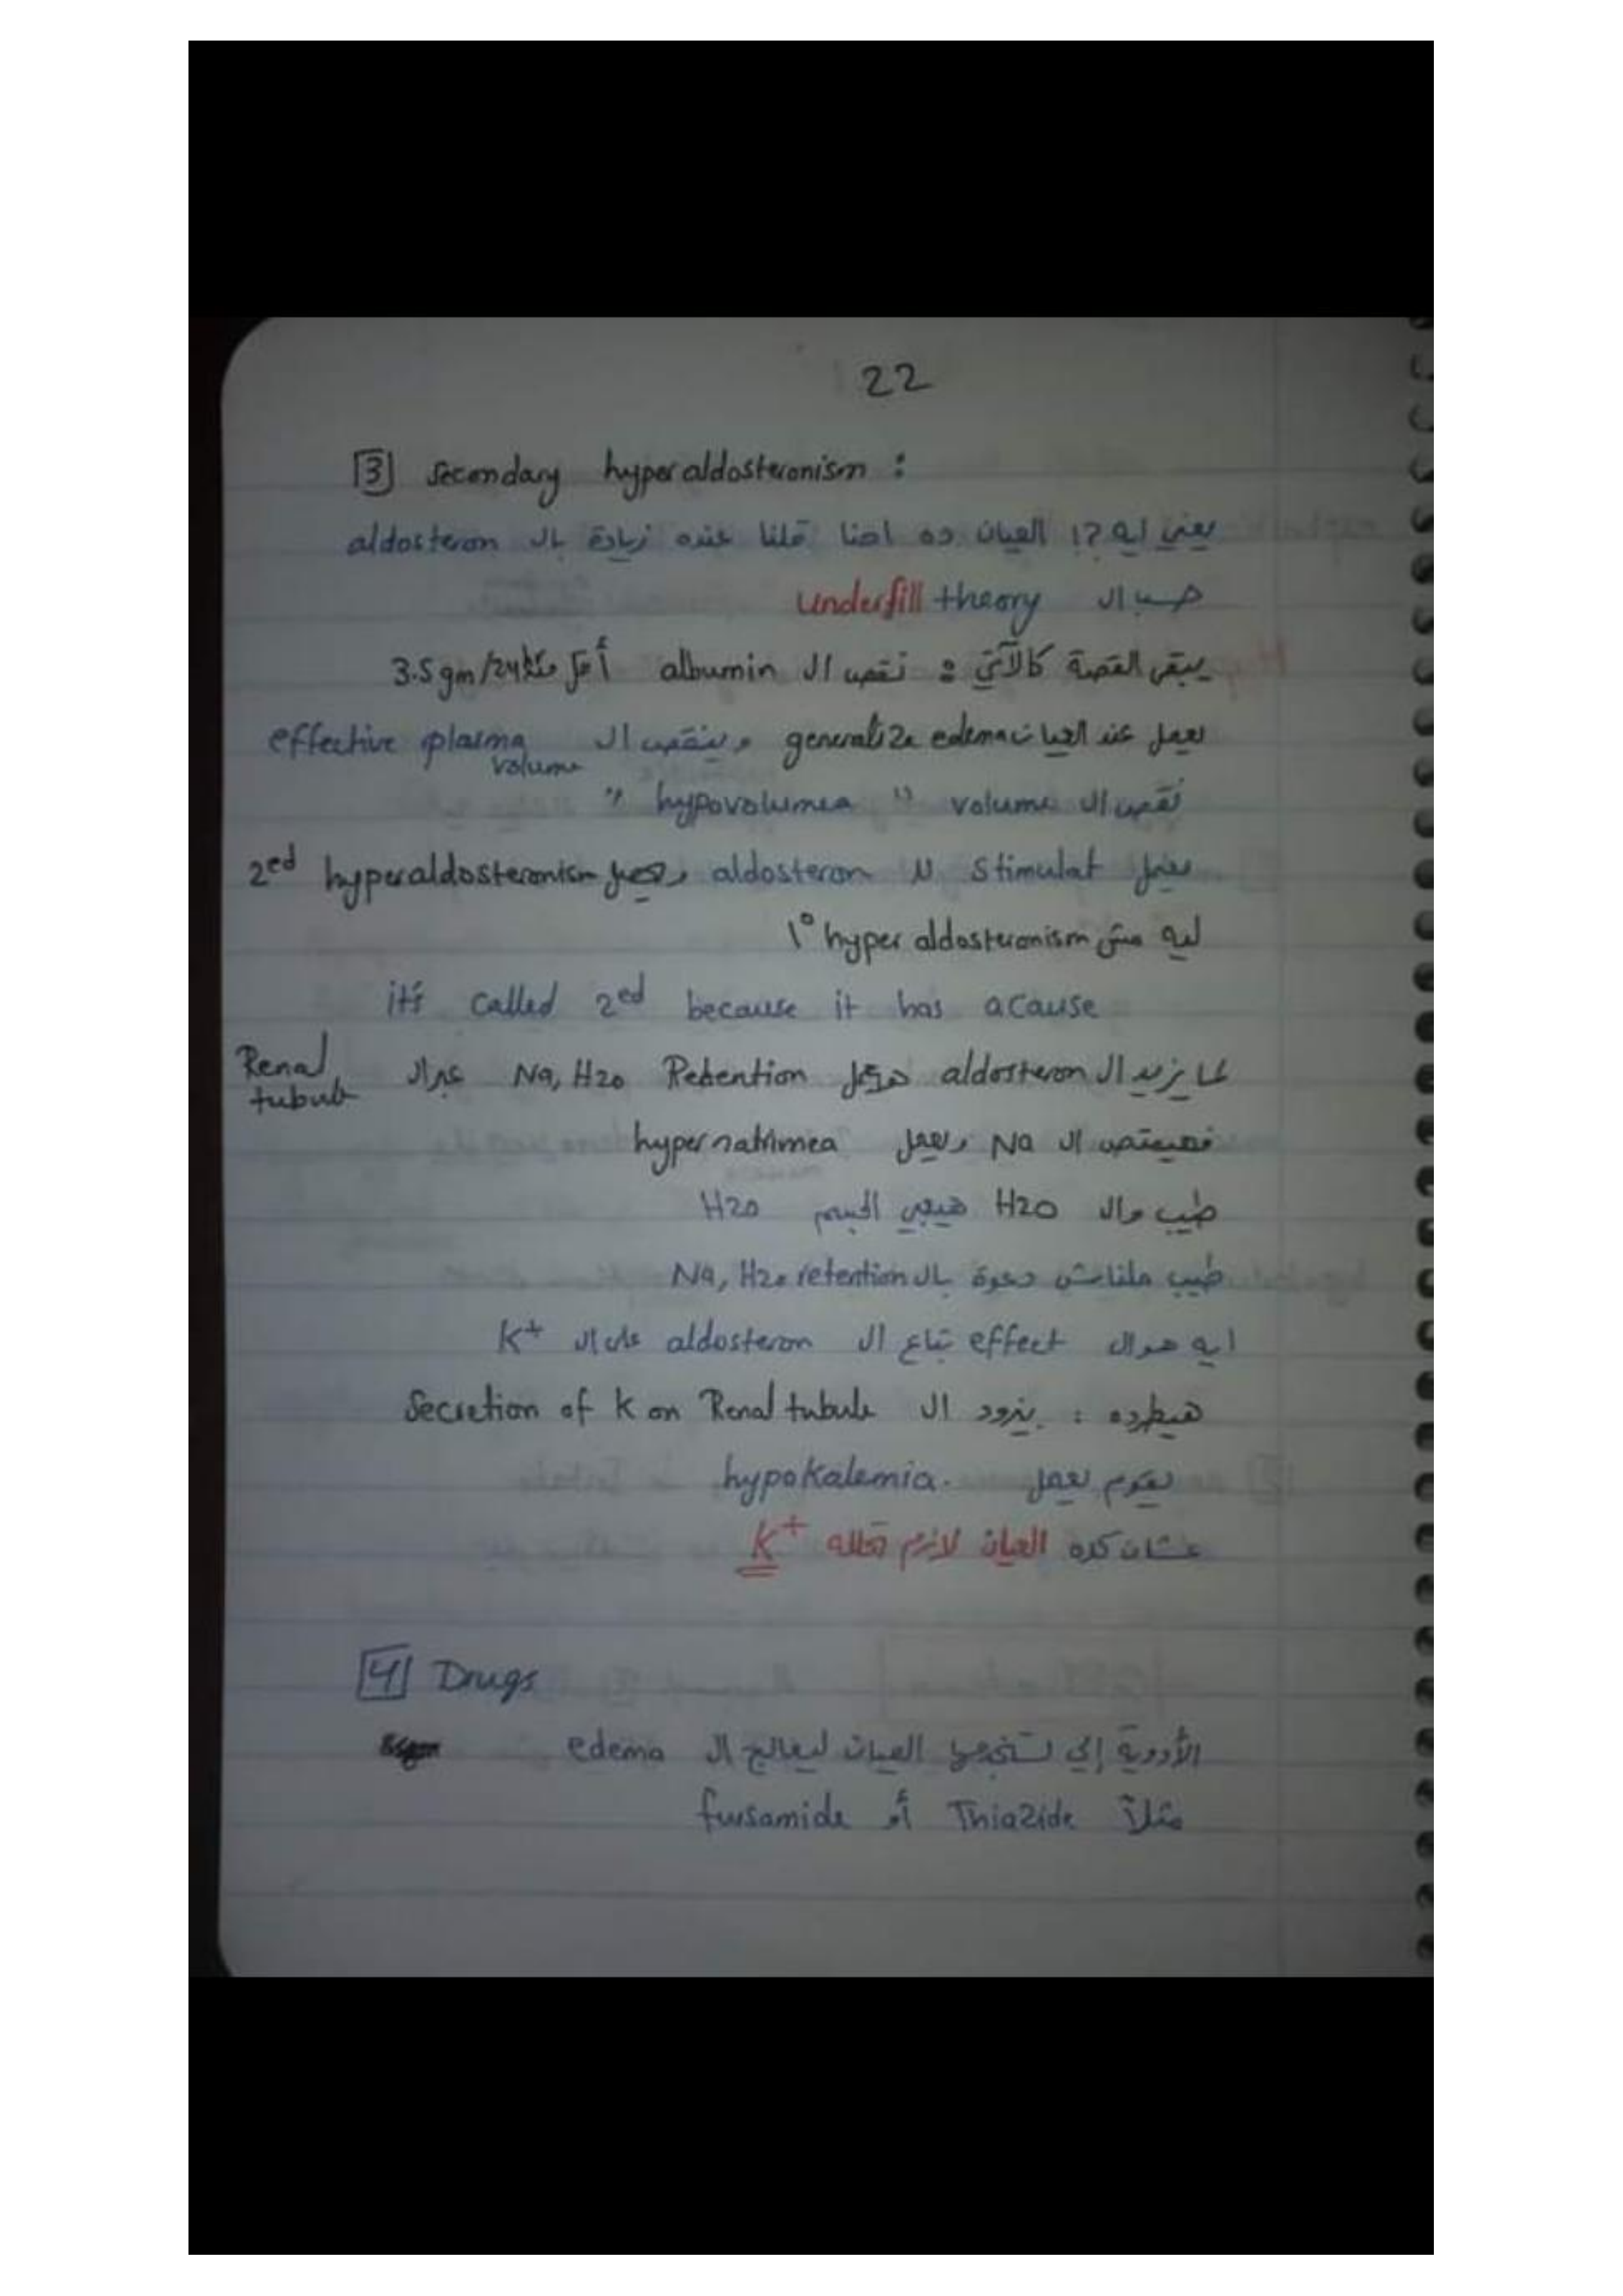 22
[3] Secondary hyperaldosteronism :
يعني ايه ؟! العيان ده احنا قلنا عنده زيادة بال aldosteron
حسب ال underfill theory
يبقى القصة كالآتي : نقص ال albumin أقل من 3.5 gm/24
يعمل عند العيان generalize edema وينقص ال effective plasma volume
نقص ال volume " hypovolumea "
يعمل Stimulat لل aldosteron ويحصل 2ed hyperaldosteronism
ليه مش 1° hyper aldosteronism
it's called 2ed because it has a cause
لما يزيد ال aldosteron هيعمل Retention Na, H2O عبر ال Renal tubule
فهيمتص ال Na ويعمل hypernatrimea
طيب وال H2O هيجي الجسم H2O
طيب ملناش دعوة بال Na, H2O retention
ايه هو ال effect بتاع ال aldosteron على ال K+
هيطرده : يزود ال Secretion of K on Renal tubule
يقوم يعمل hypokalemia.
عشان كده العيان لازم K+
[4] Drugs
الأدوية إلي العيان ليعالج ال edema
مثلاً Thiazide أو fursamide